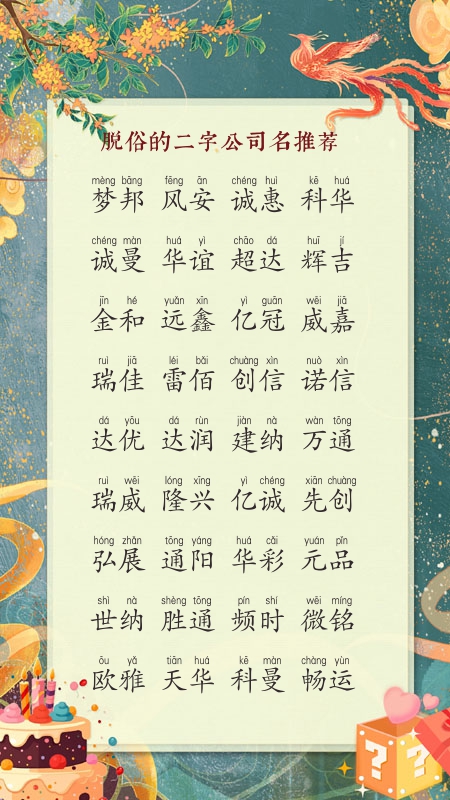 脱俗的二字公司名推荐
mèng bāng fēng ān chéng huì kē huá
梦邦 风安 诚惠 科华
chéng màn huá yì chāo dá huī jí
诚曼 华谊 超达 辉吉
jīn hé yuǎn xīn yì guān wēi jiā
金和 远鑫 亿冠 威嘉
ruì jiā léi bǎi chuàng xìn nuò xìn
瑞佳 雷佰 创信 诺信
dá yōu dá rùn jiàn nà wàn tōng
达优 达润 建纳 万通
ruì wēi lóng xīng yì chéng xiān chuàng
瑞威 隆兴 亿诚 先创
hóng zhǎn tōng yáng huá cǎi yuán pǐn
弘展 通阳 华彩 元品
shì nà shèng tōng pín shí wēi míng
世纳 胜通 频时 微铭
ōu yǎ tiān huá kē màn chàng yùn
欧雅 天华 科曼 畅运
? ?